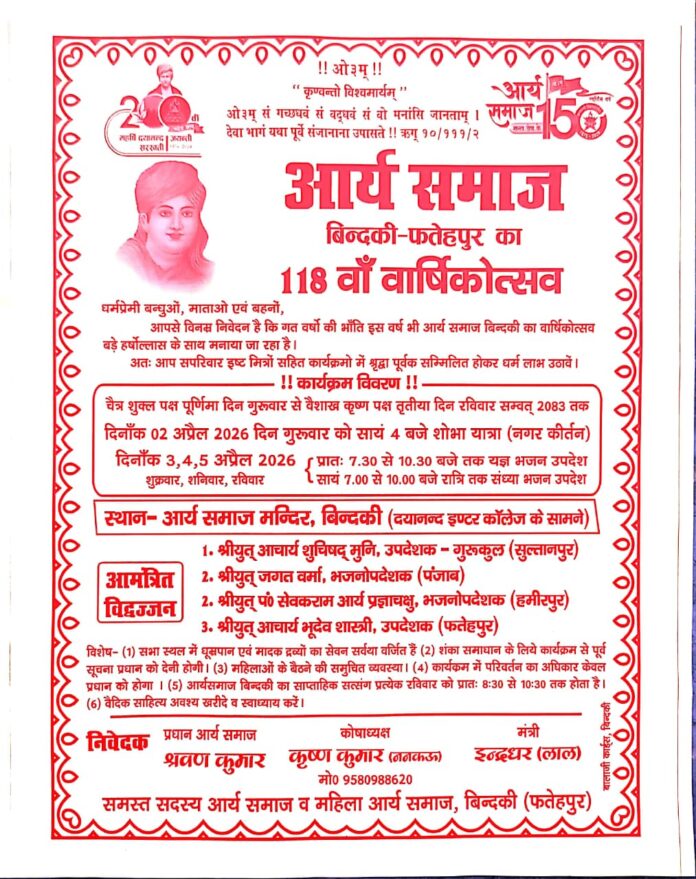 !! ओ३म् !!
“ कृण्वन्तो विश्वमार्यम्”
ओ३म् सं गच्छध्वं सं वद्ध्वं सं वो मनांसि जानताम् ।
देवा भागं यथा पूर्वे संजानाना उपासते !! ऋग् १०/१११/२
महर्षि दयानन्द सरस्वती
जयन्ती
आर्य समाज 150
आर्य समाज
बिन्दकी-फतेहपुर का
118 वाँ वार्षिकोत्सव
धर्मप्रेमी बन्धुओं, माताओ एवं बहनों,
आपसे विनम्र निवेदन है कि गत वर्षो की भाँति इस वर्ष भी आर्य समाज बिन्दकी का वार्षिकोत्सव
बड़े हर्षोल्लास के साथ मनाया जा रहा है ।
अतः आप सपरिवार इष्ट मित्रों सहित कार्यक्रमो में श्रृद्वा पूर्वक सम्मिलित होकर धर्म लाभ उठावें ।
!! कार्यक्रम विवरण !!
चैत्र शुक्ल पक्ष पूर्णिमा दिन गुरूवार से वैशाख कृष्ण पक्ष तृतीया दिन रविवार सम्वत् 2083 तक
दिनाँक 02 अप्रैल 2026 दिन गुरूवार को सायं 4 बजे शोभा यात्रा (नगर कीर्तन)
दिनाँक 3,4,5 अप्रैल 2026
शुक्रवार, शनिवार, रविवार
प्रातः 7.30 से 10.30 बजे तक यज्ञ भजन उपदेश
सायं 7.00 से 10.00 बजे रात्रि तक संध्या भजन उपदेश
स्थान- आर्य समाज मन्दिर, बिन्दकी (दयानन्द इण्टर कॉलेज के सामने)
आमंत्रित
विद्वज्जन
1. श्रीयुत् आचार्य शुचिषद् मुनि, उपदेशक - गुरूकुल (सुल्तानपुर)
2. श्रीयुत् जगत वर्मा, भजनोपदेशक (पंजाब)
2. श्रीयुत् पं० सेवकराम आर्य प्रज्ञाचक्षु, भजनोपदेशक (हमीरपुर)
3. श्रीयुत् आचार्य भूदेव शास्त्री, उपदेशक (फतेहपुर)
विशेष- (1) सभा स्थल में धूम्रपान एवं मादक द्रव्यों का सेवन सर्वथा वर्जित है (2) शंका समाधान के लिये कार्यक्रम से पूर्व
सूचना प्रधान को देनी होगी । (3) महिलाओं के बैठने की समुचित व्यवस्था । (4) कार्यकम में परिवर्तन का अधिकार केवल
प्रधान को होगा । (5) आर्यसमाज बिन्दकी का साप्ताहिक सत्संग प्रत्येक रविवार को प्रातः 8:30 से 10:30 तक होता है ।
(6) वैदिक साहित्य अवश्य खरीदे व स्वाध्याय करें ।
निवेदक
प्रधान आर्य समाज
श्रवण कुमार
कोषाध्यक्ष
कृष्ण कुमार (ननकऊ)
मो0 9580988620
मंत्री
इन्द्रधर (लाल)
समस्त सदस्य आर्य समाज व महिला आर्य समाज, बिन्दकी (फतेहपुर)
बालाजी कार्ड्स, बिन्दकी